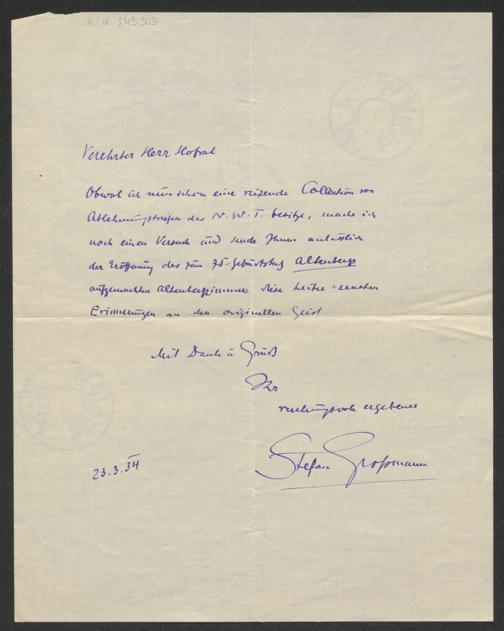 H.I.N. 243303
Verehrter Herr Hofrat
Obwol ich nun schon eine reizende Collection von
Ablehnungsbriefen des N. W. T. besitze, mache ich
noch einen Versuch und sende Ihnen anlässlich
der Eröffnung des zum 75. Geburtstag Altenbergs
aufgemachten Altenbergzimmers diese heiter-ernsten
Erinnerungen an den originellen Geist.
Mit Dank u Gruß
Ihr
verehrungsvoll ergebener
Stefan Großmann
23.3.34